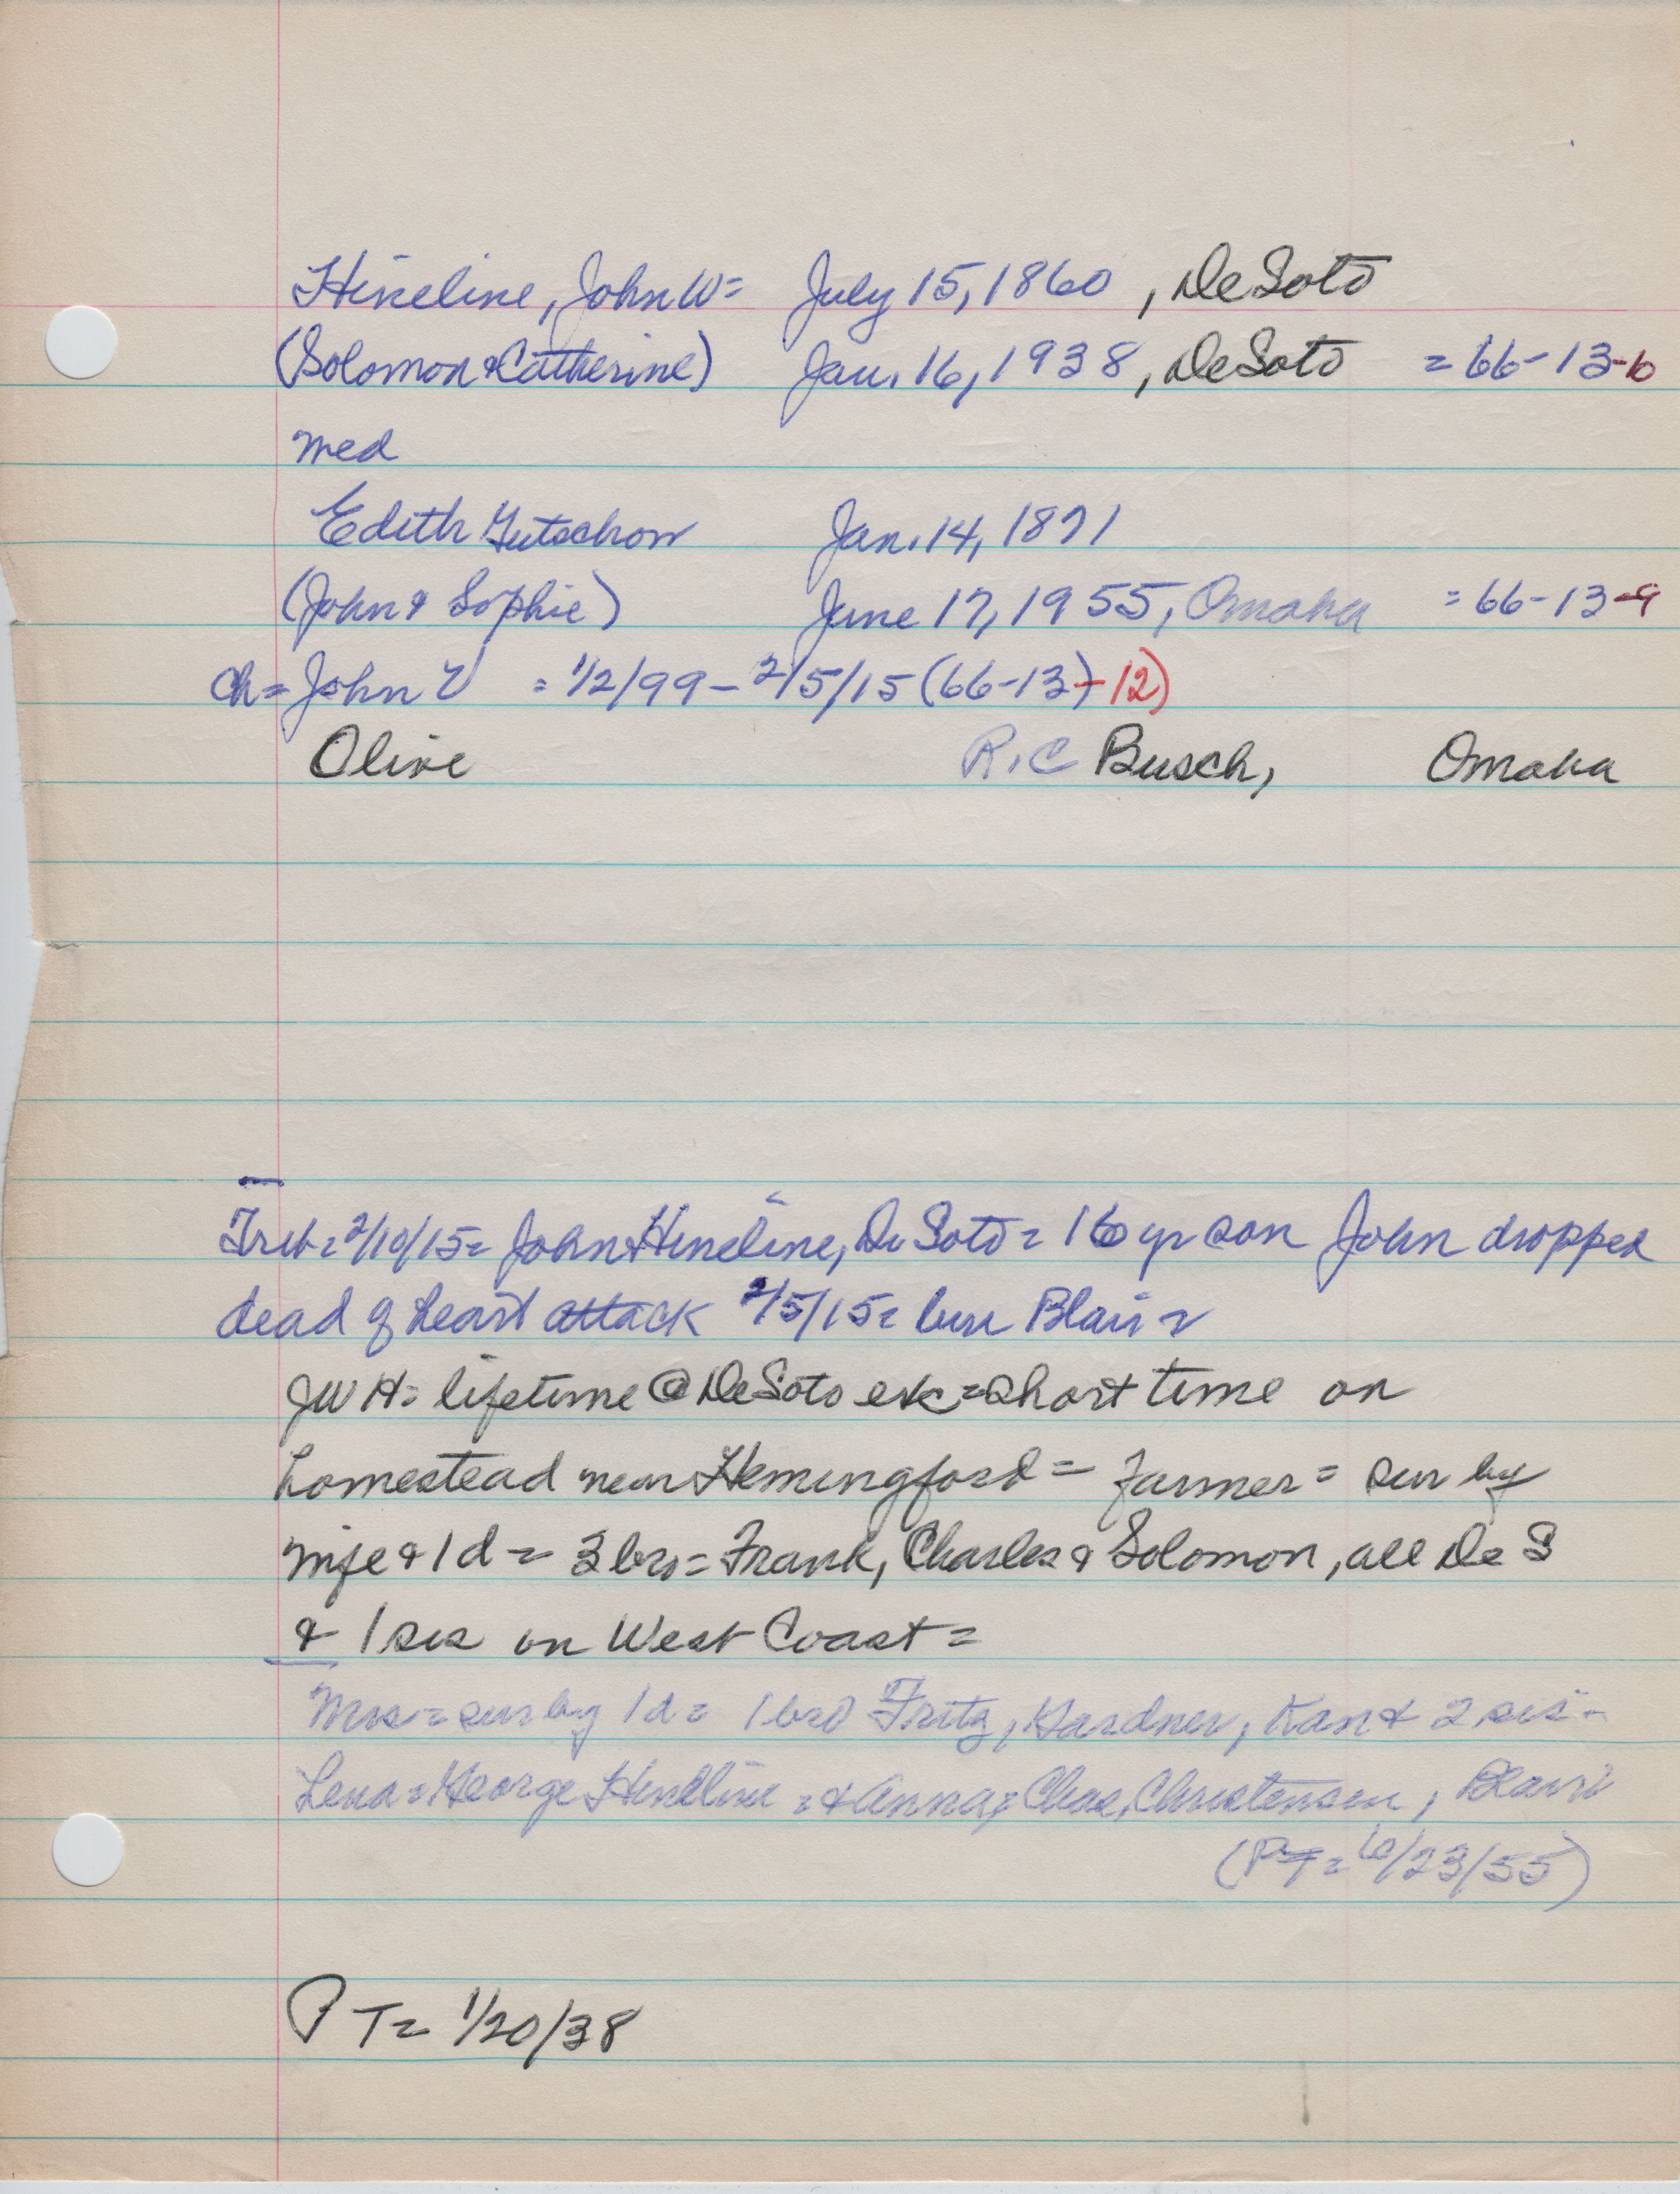 Hineline, John W= July 15, 1860 , DeSoto
(Solomon & Catherine) Jan. 16, 1938, DeSoto = 66-13-10
med
Edith Gutschow Jan. 14, 1871
(John & Sophie) June 17, 1955, Omaha = 66-13-9
ch= John V = 1/2/99 - 2/5/15 (66-13-12)
Olive R.C Busch, Omaha
Trib= 2/10/15= John Hineline, De Soto= 16 yr son John dropped
dead of heart attack 2/5/15= bur Blair=
JWH= lifetime @ DeSoto exc= short time on
homestead near Hemingford= farmer= sur by
wife & 1 d= 3 bro= Frank, Charles & Solomon, all De S
& 1 sis on West Coast=
Mrs= sur by 1 d= 1 bro Fritz, Gardner, Kan & 2 sis-
Lena= George Hineline =& Anna= Chas. Christensen, Blair
(PT= 6/23/55)
PT= 1/20/38